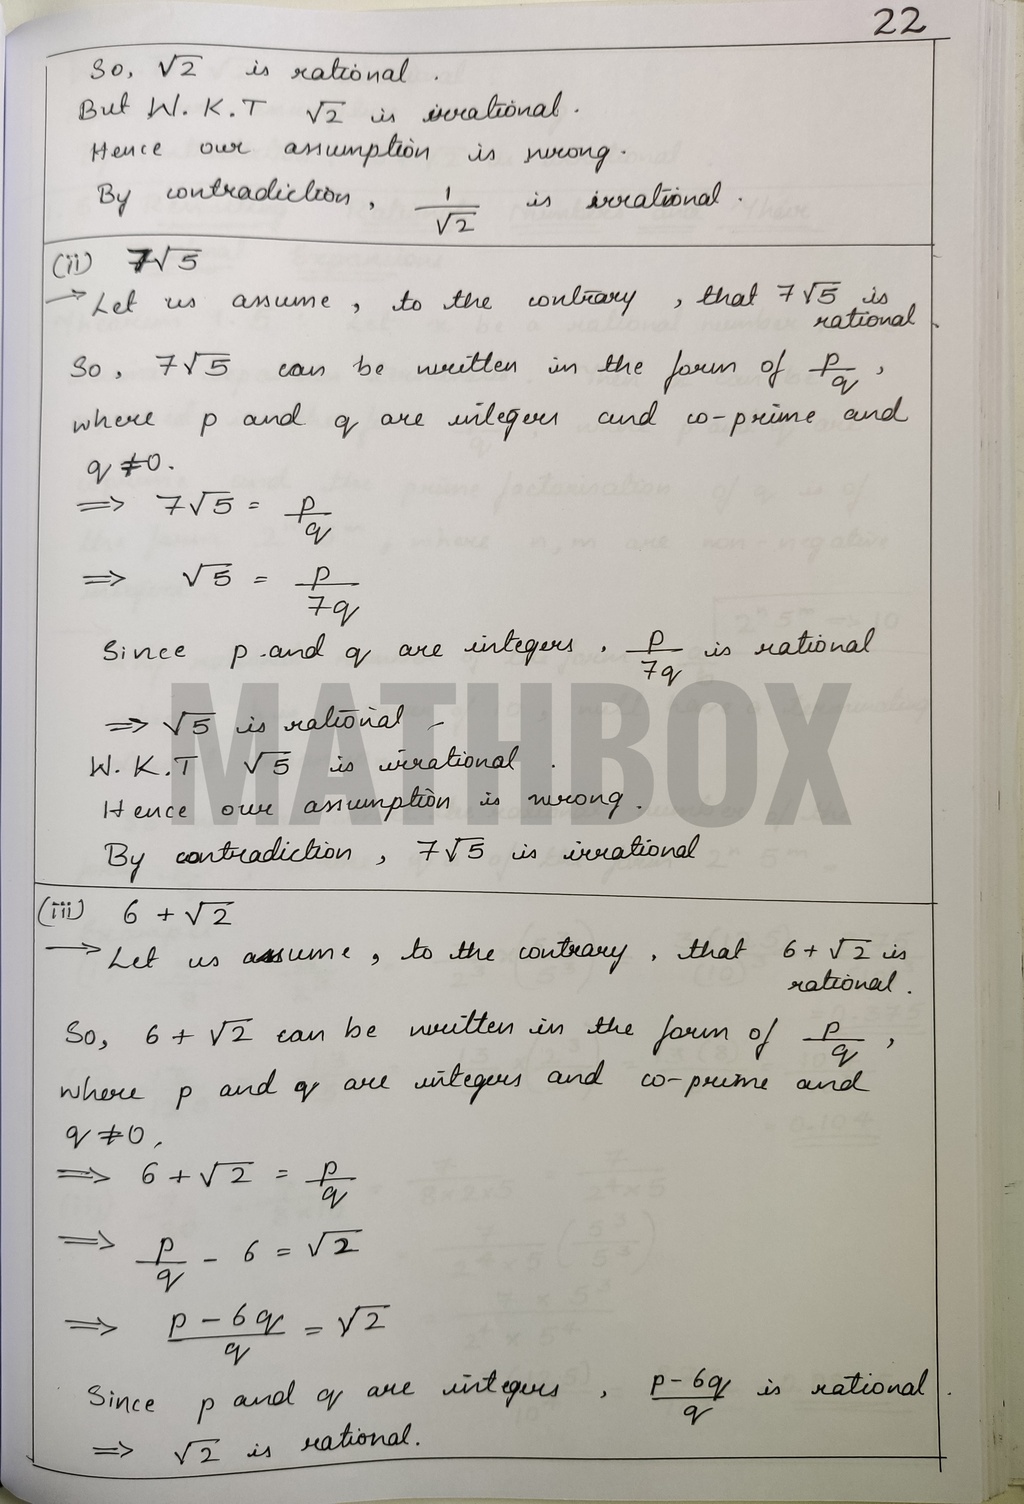 22
So, √2 is rational.
But W.K.T √2 is irrational.
Hence our assumption is wrong.
By contradiction, 1/√2 is irrational.
(ii) 7√5
→ Let us assume, to the contrary, that 7√5 is
rational.
So, 7√5 can be written in the form of p/q,
where p and q are integers and co-prime and
q ≠ 0.
⇒ 7√5 = p/q
⇒ √5 = p/7q
Since p and q are integers, p/7q is rational
⇒ √5 is rational
MATHBOX
W.K.T √5 is irrational.
Hence our assumption is wrong.
By contradiction, 7√5 is irrational
(iii) 6 + √2
→ Let us assume, to the contrary, that 6 + √2 is
rational.
So, 6 + √2 can be written in the form of p/q,
where p and q are integers and co-prime and
q ≠ 0,
⇒ 6 + √2 = p/q
⇒ p/q - 6 = √2
⇒ p - 6q/q = √2
Since p and q are integers, p - 6q/q is rational.
⇒ √2 is rational.